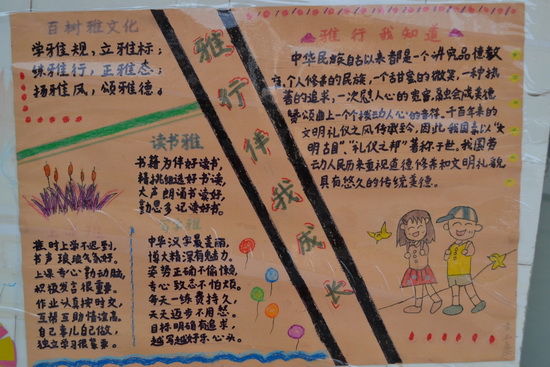 百树雅文化
学雅规,立雅标;
练雅行,正雅态;
扬雅风,颂雅德。
读书雅
书籍为伴好读书,
精挑细选好书读,
大声朗诵书读好,
勤思多记读好书。
上时上学不迟到,
书声琅琅气氛好。
上课专心勤动脑,
积极发言很重要。
作业认真按时交,
互帮互助情谊高。
自己事儿自己做,
独立学习很重要。
中华汉字最美丽,
博大精深有魅力。
姿势正确不偷懒,
专心致志不怕烦。
每天一练贵持久,
天天进步不用愁。
目标明确有追求,
越写越好乐心头。
雅行伴我成长
雅行我知道
中华民族自古以来都是一个讲究品德教
育,个人修养的民族,一个甜蜜的微笑,一种执
著的追求,一次慰人心的宽容,虽会会成美德
赞颂曲上一个个拨动人心的音符。千百年来的
文明礼仪之风传承至今,因此,我国素以“文
明古国”、“礼仪之邦”著称于世。我国劳
动人民历来重视道德修养和文明礼貌
具有悠久的传统美德。